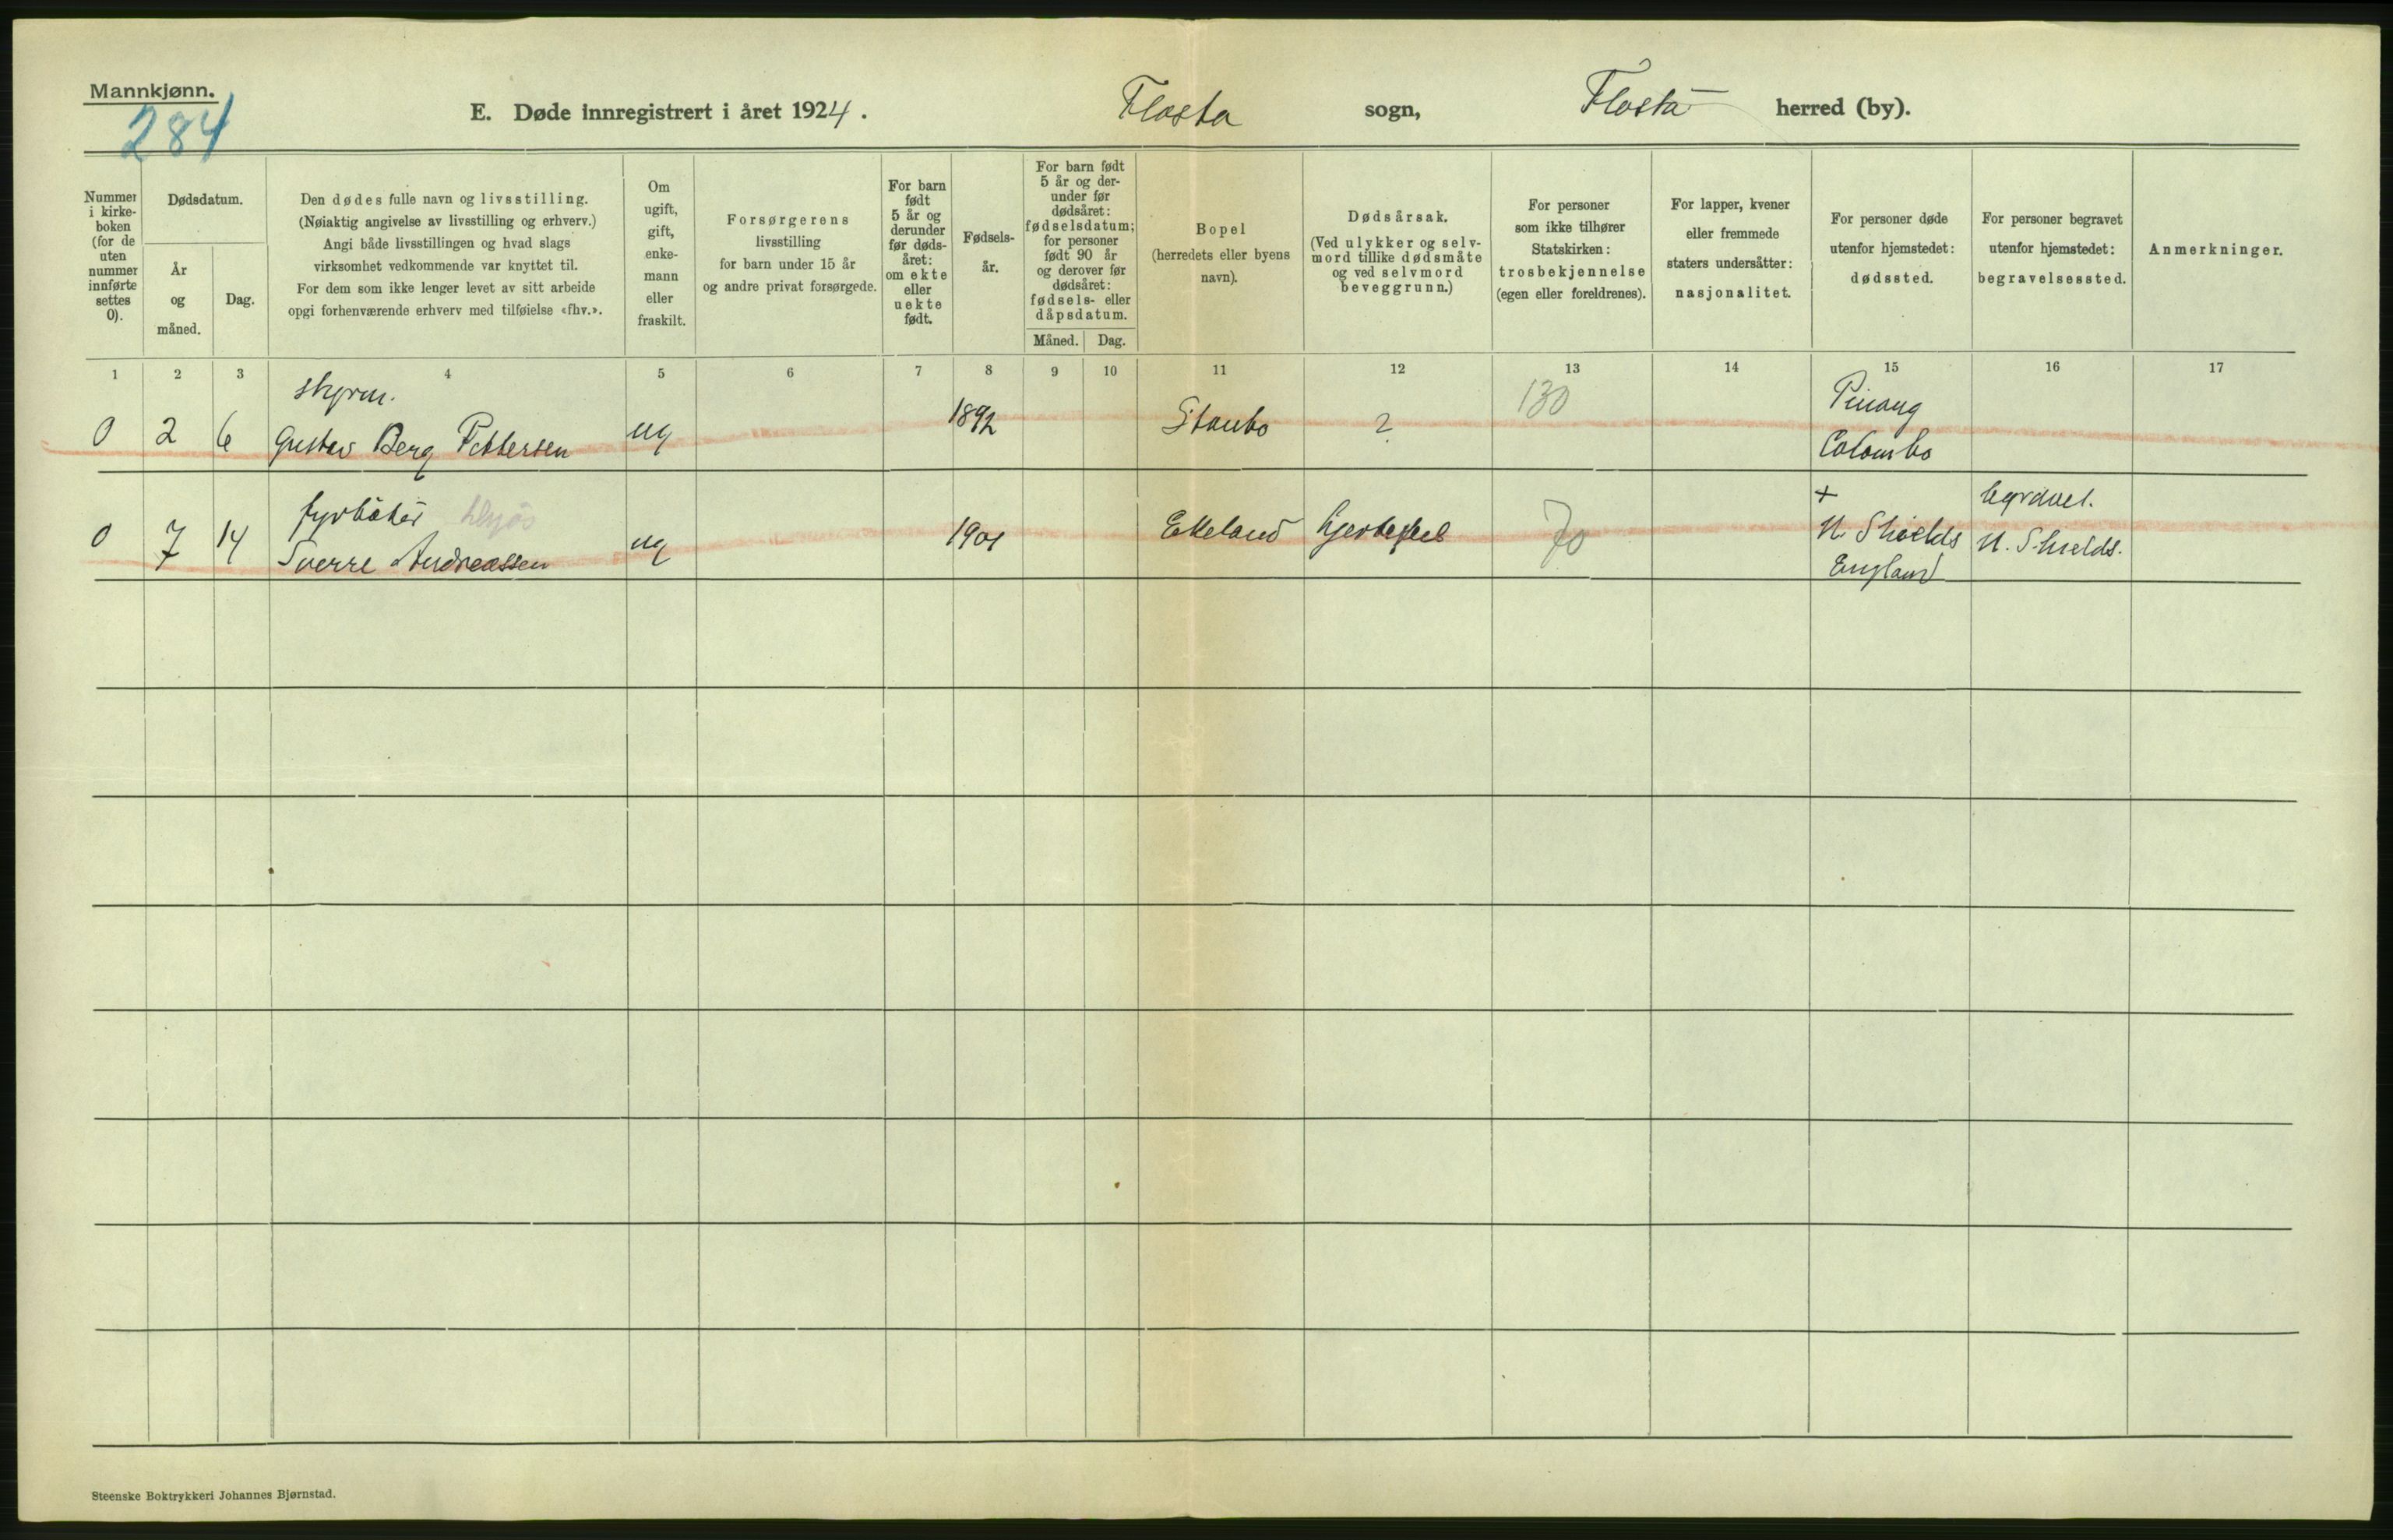 Mannkjønn.
284
E. Døde innregistrert i året 1924.
Flosta sogn, Flosta herred (by).
Nummer
i kirke-
boken
(for de
uten
nummer
innførte
settes
0).
Dødsdatum.
År
og
måned.
Dag.
Den dødes fulle navn og livsstilling.
(Nøiaktig angivelse av livsstilling og erhverv.)
Angi både livsstillingen og hvad slags
virksomhet vedkommende var knyttet til.
For dem som ikke lenger levet av sitt arbeide
opgi forhenværende erhverv med tilføielse «fhv.».
Om
ugift,
gift,
enke-
mann
eller
fraskilt.
Forsørgerens
livsstilling
for barn under 15 år
og andre privat forsørgede.
For barn
født
5 år og
derunder
før døds-
året:
om ekte
eller
uekte
født.
Fødsels-
år.
For barn født
5 år og der-
under før
dødsåret:
fødselsdatum;
for personer
født 90 år
og derover før
dødsåret:
fødsels- eller
dåpsdatum.
Måned. Dag.
Bopel
(herredets eller byens
navn).
Dødsårsak.
(Ved ulykker og selv-
mord tillike dødsmåte
og ved selvmord
beveggrunn.)
For personer
som ikke tilhører
Statskirken:
trosbekjennelse
(egen eller foreldrenes).
For lapper, kvener
eller fremmede
staters undersåtter:
nasjonalitet.
For personer døde
utenfor hjemstedet:
dødssted.
For personer begravet
utenfor hjemstedet:
begravelsessted.
Anmerkninger.
1 2 3 4 5 6 7 8 9 10 11 12 13 14 15 16 17
styrm. 130 Pinang
0 2 6 Gustav Berg Pettersen ug 1892 Staubo ? Colombo
fyrbøter + begravet.
0 7 14 Sverre Andreassen ug 1901 Ekeland 70 N. Shields N. Shields.
England
Steenske Boktrykkeri Johannes Bjørnstad.